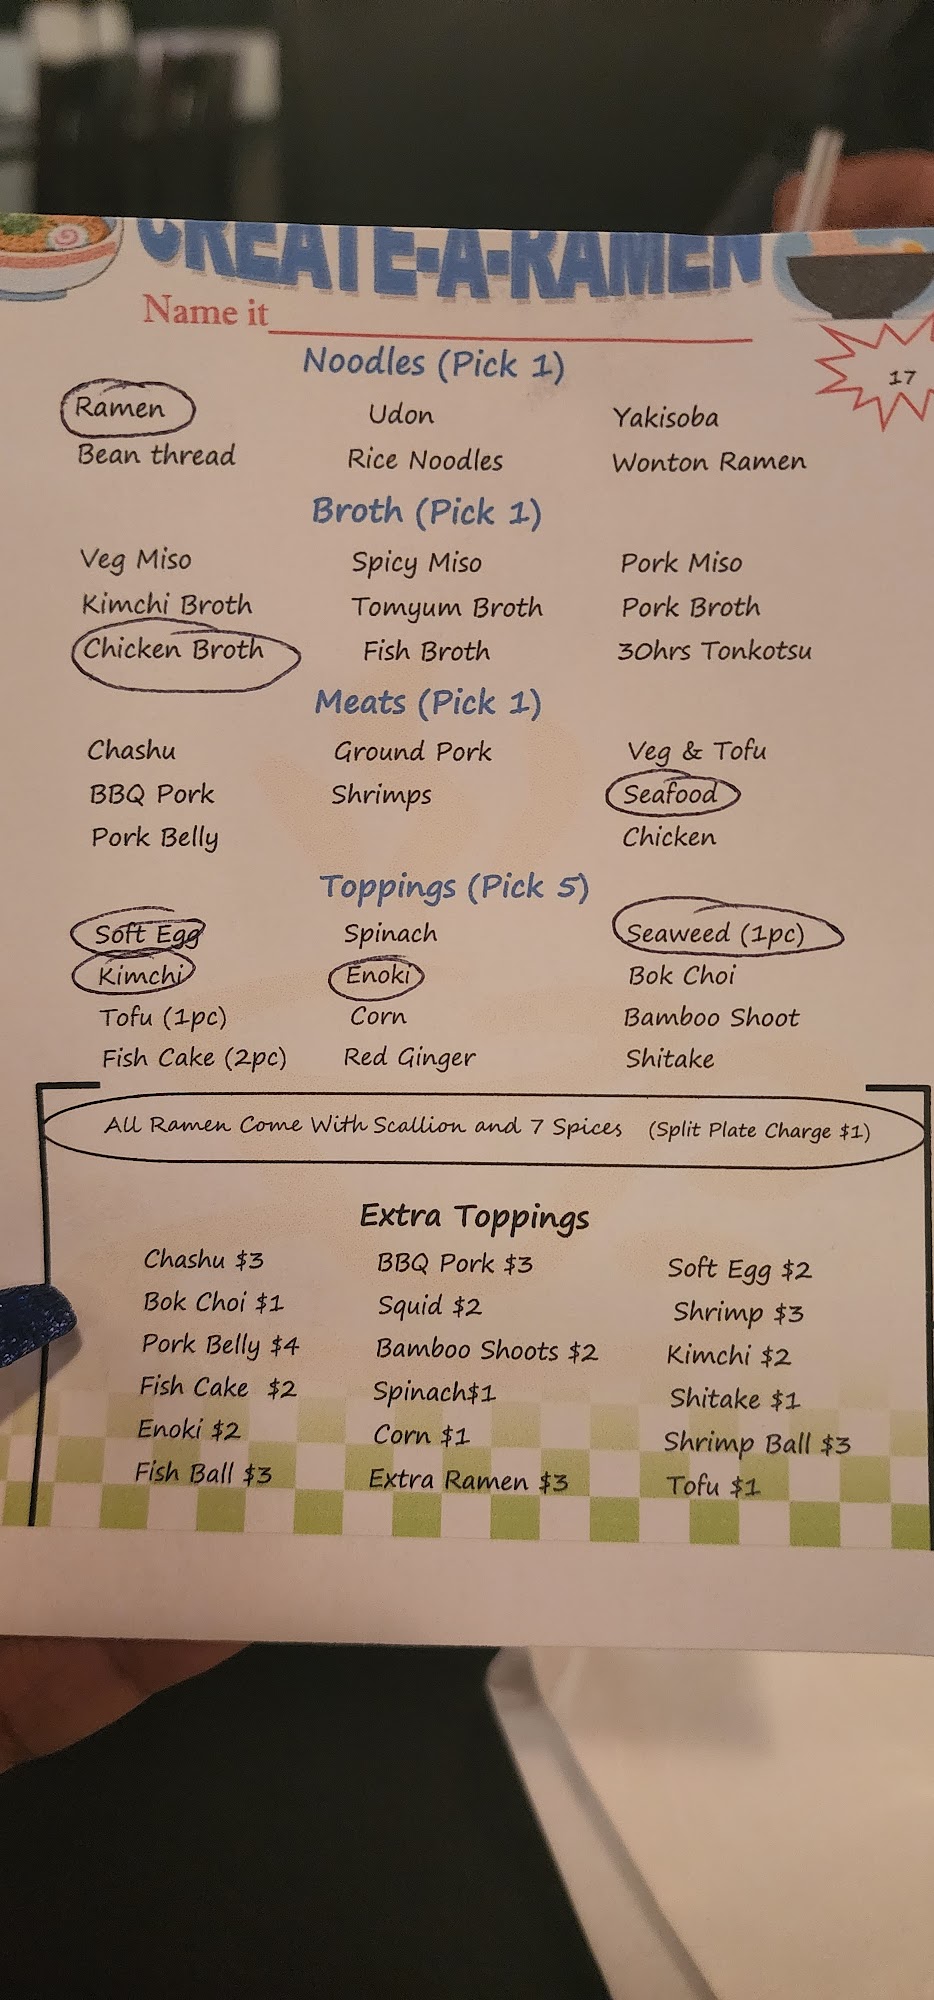 CREATE-A-RAMEN
Name it
17
Noodles (Pick 1)
Ramen Udon Yakisoba
Bean thread Rice Noodles Wonton Ramen
Broth (Pick 1)
Veg Miso Spicy Miso Pork Miso
Kimchi Broth Tomyum Broth Pork Broth
Chicken Broth Fish Broth 30hrs Tonkotsu
Meats (Pick 1)
Chashu Ground Pork Veg & Tofu
BBQ Pork Shrimps Seafood
Pork Belly Chicken
Toppings (Pick 5)
Soft Egg Spinach Seaweed (1pc)
Kimchi Enoki Bok Choi
Tofu (1pc) Corn Bamboo Shoot
Fish Cake (2pc) Red Ginger Shitake
All Ramen Come With Scallion and 7 Spices (Split Plate Charge $1)
Extra Toppings
Chashu $3 BBQ Pork $3 Soft Egg $2
Bok Choi $1 Squid $2 Shrimp $3
Pork Belly $4 Bamboo Shoots $2 Kimchi $2
Fish Cake $2 Spinach$1 Shitake $1
Enoki $2 Corn $1 Shrimp Ball $3
Fish Ball $3 Extra Ramen $3 Tofu $1